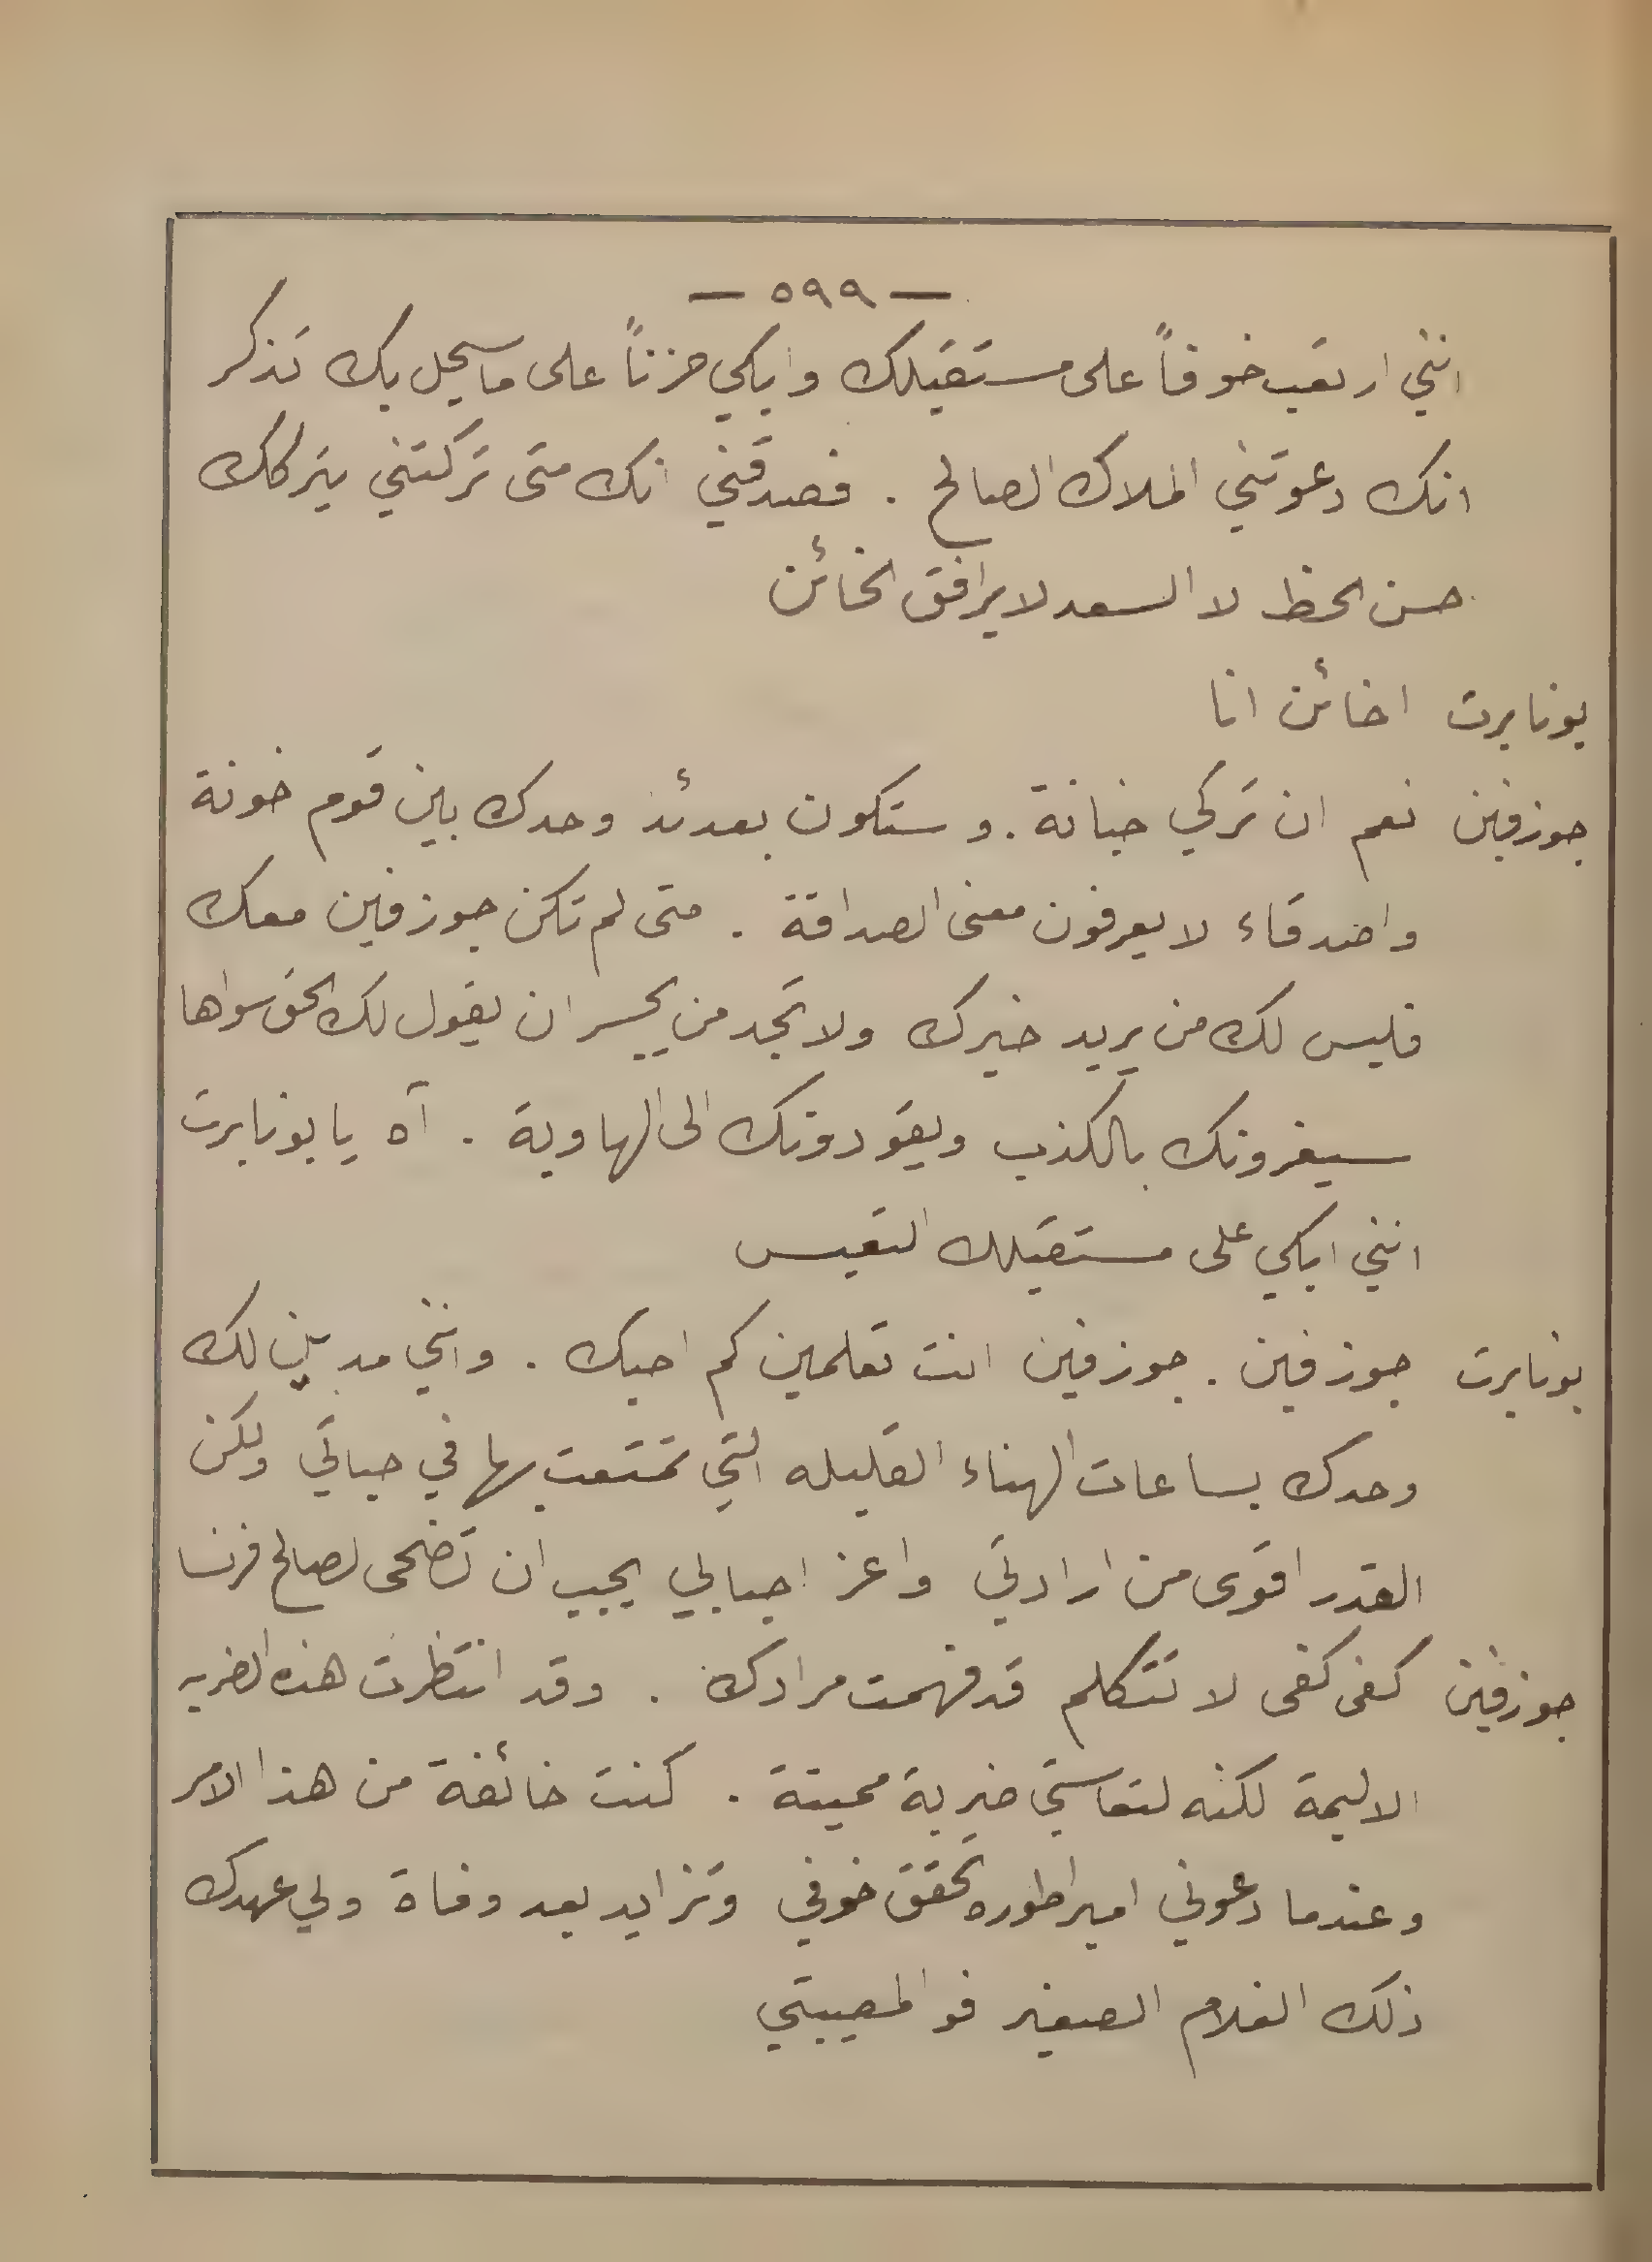 — ٥٩٩ —
انني ارتعب خوفاً على مستقبلك وابكي حزناً على ما سيحل بك تذكر
انك دعوتني الملاك الصالح . فصدقني انك متى تركتني يتركك
حسن الحظ لا السعد لا يرافق الخائن
بونابرت اخائن انا
جوزفين نعم ان تركي خيانة . وستكون بعدئذ وحدك بين قوم خونة
واصدقاء لا يعرفون معنى الصداقة . متى لم تكن جوزفين معك
فليس لك من يريد خيرك ولا تجد من يجسر ان يقول لك الحق سواها
سيغرونك بالكذب ويقودونك الى الهاوية . آه يا بونابرت
انني ابكي على مستقبلك التعيس
بونابرت جوزفين . جوزفين انت تعلمين كم احبك . وانني مدين لك
وحدك بساعات الهناء القليله التي تمتعت بها في حياتي ولكن
القدر اقوى من ارادتي واعز احبابي يجب ان تضحى لصالح فرنسا
جوزفين كفى كفى لا تتكلم قد فهمت مرادك . وقد انتظرت هذه الضربه
الاليمة لكنه لتعاستي ضربة مميتة . كنت خائفة من هذا الامر
وعندما دعوني امبراطوره تحقق خوفي وتزايد بعد وفاة ولي عهدك
ذلك الغلام الصغير فوالمصيبتي